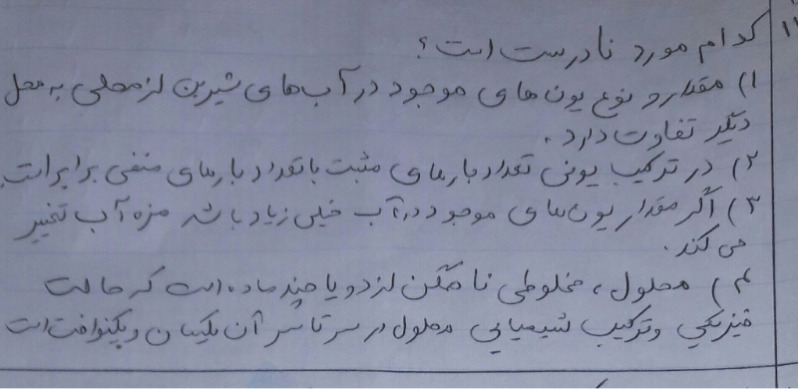 ۱۱ کدام مورد نادرست است؟
۱) مقدار و نوع یون های موجود در آب های شیرین از محلی به محل
دیگر تفاوت دارد.
۲) در ترکیب یونی تعداد بارهای مثبت با تعداد بارهای منفی برابر است.
۳) اگر مقدار یون های موجود در آب خیلی زیاد باشد مزه آب تغییر
می کند.
۴) محلول، مخلوطی ناهمگن از دو یا چند ماده است که حالت
فیزیکی و ترکیب شیمیایی محلول در سرتاسر آن یکسان و یکنواخت است